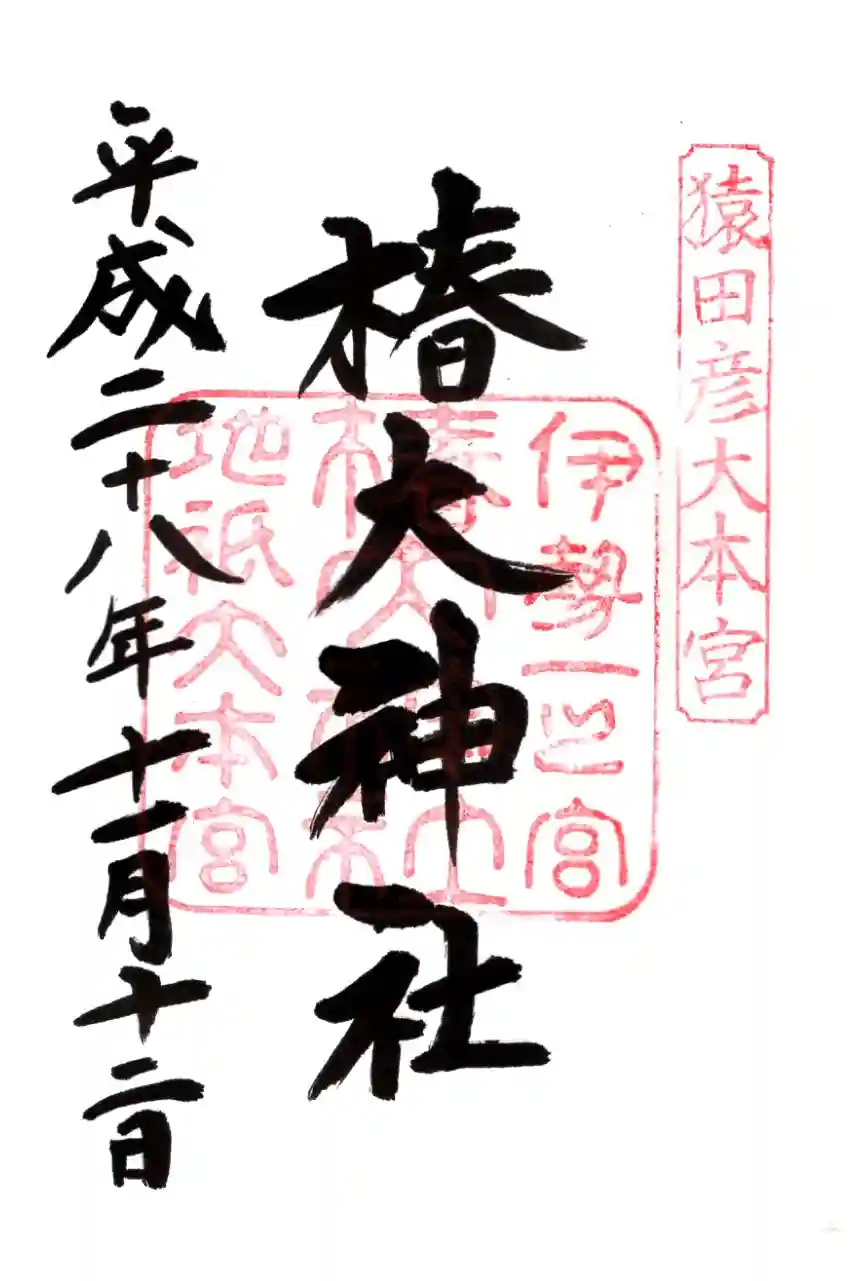 猿田彦大本宮
伊勢一之宮
椿大神社
地祇大本宮
椿大神社
平成二十八年十一月十二日